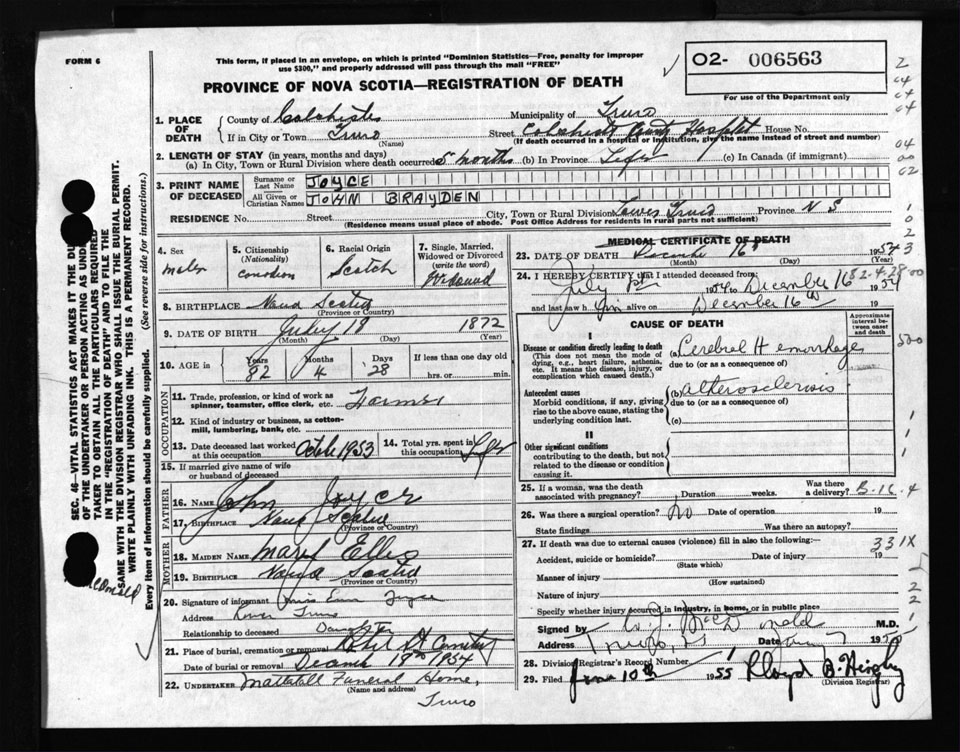 FORM 6
This form, if placed in an envelope, on which is printed "Dominion Statistics—Free, penalty for improper
use $300," and properly addressed will pass through the mail "FREE"
O2- 006563
For use of the Department only
PROVINCE OF NOVA SCOTIA—REGISTRATION OF DEATH
1. PLACE OF DEATH County of Colchester Municipality of Truro
If in City or Town Truro (Name) Street Colchester County Hospital House No.
(If death occurred in a hospital or institution, give the name instead of street and number)
2. LENGTH OF STAY (in years, months and days)
(a) In City, Town or Rural Division where death occurred 5 months (b) In Province Life (c) In Canada (if immigrant)
3. PRINT NAME OF DECEASED Surname or Last Name JOYCE
All Given or Christian Names JOHN BRAYDEN
RESIDENCE No. Street City, Town or Rural Division Lower Truro Province N S
(Residence means usual place of abode. Post Office Address for residents in rural parts not sufficient)
4. Sex male
5. Citizenship (Nationality) Canadian
6. Racial Origin Scotch
7. Single, Married, Widowed or Divorced (write the word) Widowed
8. BIRTHPLACE Nova Scotia
(Province or Country)
9. DATE OF BIRTH July 18 1872
(Month) (Day) (Year)
10. AGE in Years 82 Months 4 Days 28 If less than one day old
hrs. or min.
OCCUPATION
11. Trade, profession, or kind of work as spinner, teamster, office clerk, etc. Farmer
12. Kind of industry or business, as cotton-mill, lumbering, bank, etc.
13. Date deceased last worked at this occupation Oct 1953
14. Total yrs. spent in this occupation Life
15. If married give name of wife or husband of deceased
FATHER
16. NAME John Joyce
17. BIRTHPLACE Nova Scotia
(Province or Country)
MOTHER
18. MAIDEN NAME Mary Ellis
19. BIRTHPLACE Nova Scotia
(Province or Country)
20. Signature of informant Joyce
Address Lower Truro
Relationship to deceased Daughter
21. Place of burial, cremation or removal Cemetery
Date of burial or removal 18th 1954
22. UNDERTAKER Mattatall Funeral Home,
(Name and address)
Truro
MEDICAL CERTIFICATE OF DEATH
23. DATE OF DEATH December 16th 1954
(Month) (Day) (Year)
24. I HEREBY CERTIFY that I attended deceased from:
July 1st 1954 to December 16 1954
82-4-28
and last saw him alive on December 16th 19
CAUSE OF DEATH
Approximate interval between onset and death
I
Disease or condition directly leading to death
(This does not mean the mode of dying, e.g., heart failure, asthenia, etc. It means the disease, injury, or complication which caused death.)
(a) Cerebral Hemorrhage
due to (or as a consequence of)
Antecedent causes
Morbid conditions, if any, giving rise to the above cause, stating the underlying condition last.
(b) atherosclerosis
due to (or as a consequence of)
(c)
II
Other significant conditions
contributing to the death, but not related to the disease or condition causing it.
25. If a woman, was the death associated with pregnancy? Duration weeks. Was there a delivery? B-16.4
26. Was there a surgical operation? No Date of operation 19
State findings Was there an autopsy?
27. If death was due to external causes (violence) fill in also the following:
331X
Accident, suicide or homicide? Date of injury 19
(State which)
Manner of injury
(How sustained)
Nature of injury
Specify whether injury occurred in industry, in home, or in public place
Signed by McDonald M.D.
Address Truro, Date 19
28. Division Registrar's Record Number 1
29. Filed 10th 1955 Lloyd
(Division Registrar)
SEC. 46—VITAL STATISTICS ACT MAKES IT THE
OF THE UNDERTAKER OR PERSON ACTING AS
TAKER TO OBTAIN ALL THE PARTICULARS REQUIRED
IN THE "REGISTRATION OF DEATH" AND TO FILE THE
SAME WITH THE DIVISION REGISTRAR WHO SHALL ISSUE THE BURIAL PERMIT.
WRITE PLAINLY WITH UNFADING INK. THIS IS A PERMANENT RECORD.
Every item of information should be carefully supplied. (See reverse side for instructions.)